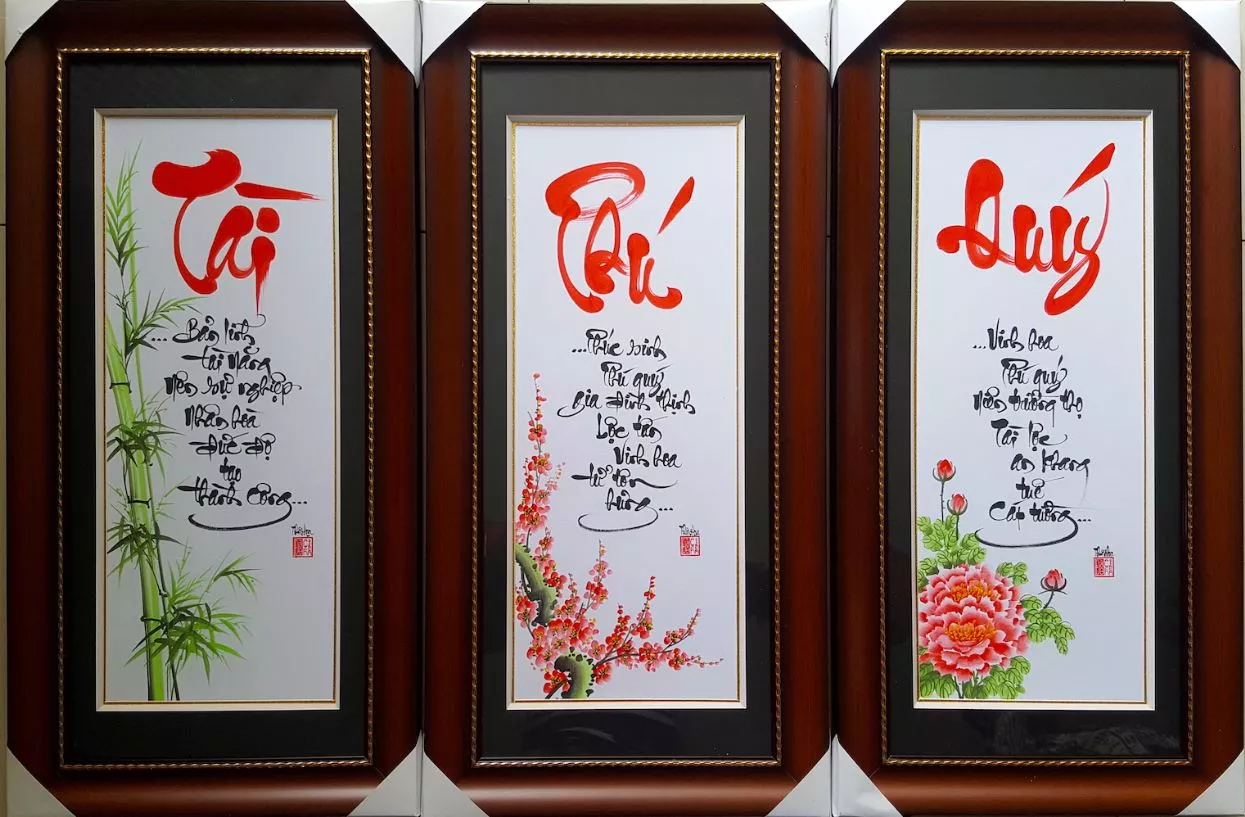 Tài
...Bản lĩnh
tài năng
nên sự nghiệp
Nhân hòa
đức độ
tạo
thành công...
Phú
...Phúc sinh
Phú quý
gia đình thịnh
Lộc tấn
Vinh hoa
tử tôn
hưng...
Quý
...Vinh hoa
Phú quý
niên trường thọ
Tài lộc
an khang
tuế
Cát tường...